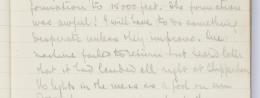 formation to 15000 feet. The formation
was awful! I will have to do something
desperate unless they improve. One
machine failed to return but heard later
that it had landed all right at
No lights in the mess as a fool on